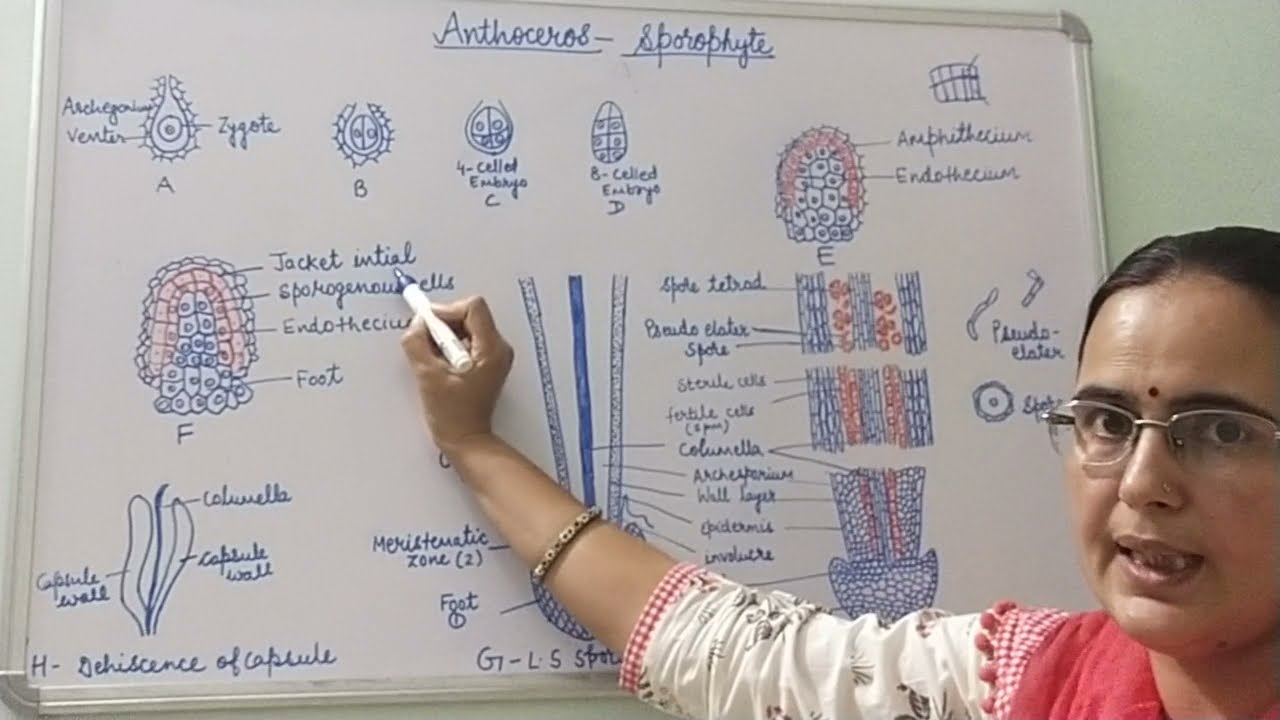 Anthoceros - Sporophyte
Archegonium
Venter
Zygote
A
B
4-celled
Embryo
C
8-celled
Embryo
D
Amphithecium
Endothecium
E
Jacket intial
Sporogenous cells
Endothecium
Foot
F
Spore tetrad
Pseudo elater
Spore
Sterile cells
fertile cells
Columella
Archesporium
Wall layer
epidermis
involucre
Pseudo-
elater
Spore
Columella
Capsule
wall
Capsule
wall
H- Dehiscence of Capsule
Meristematic
Zone (2)
Foot
①
G - L.S Spor